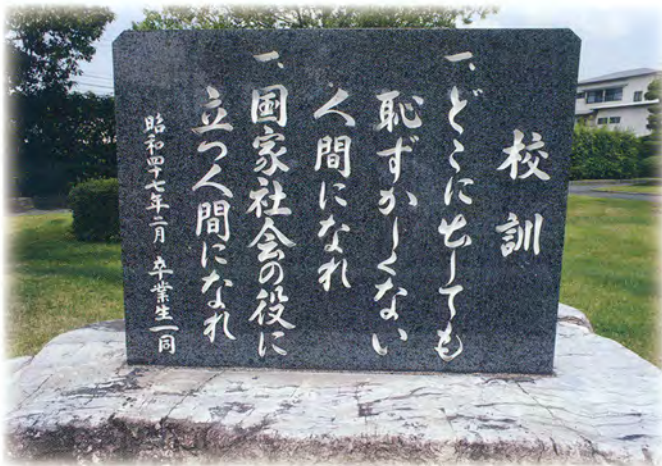 校訓
一、どこに出しても
恥ずかしくない
人間になれ
一、国家社会の役に
立つ人間になれ
昭和四十七年二月 卒業生一同